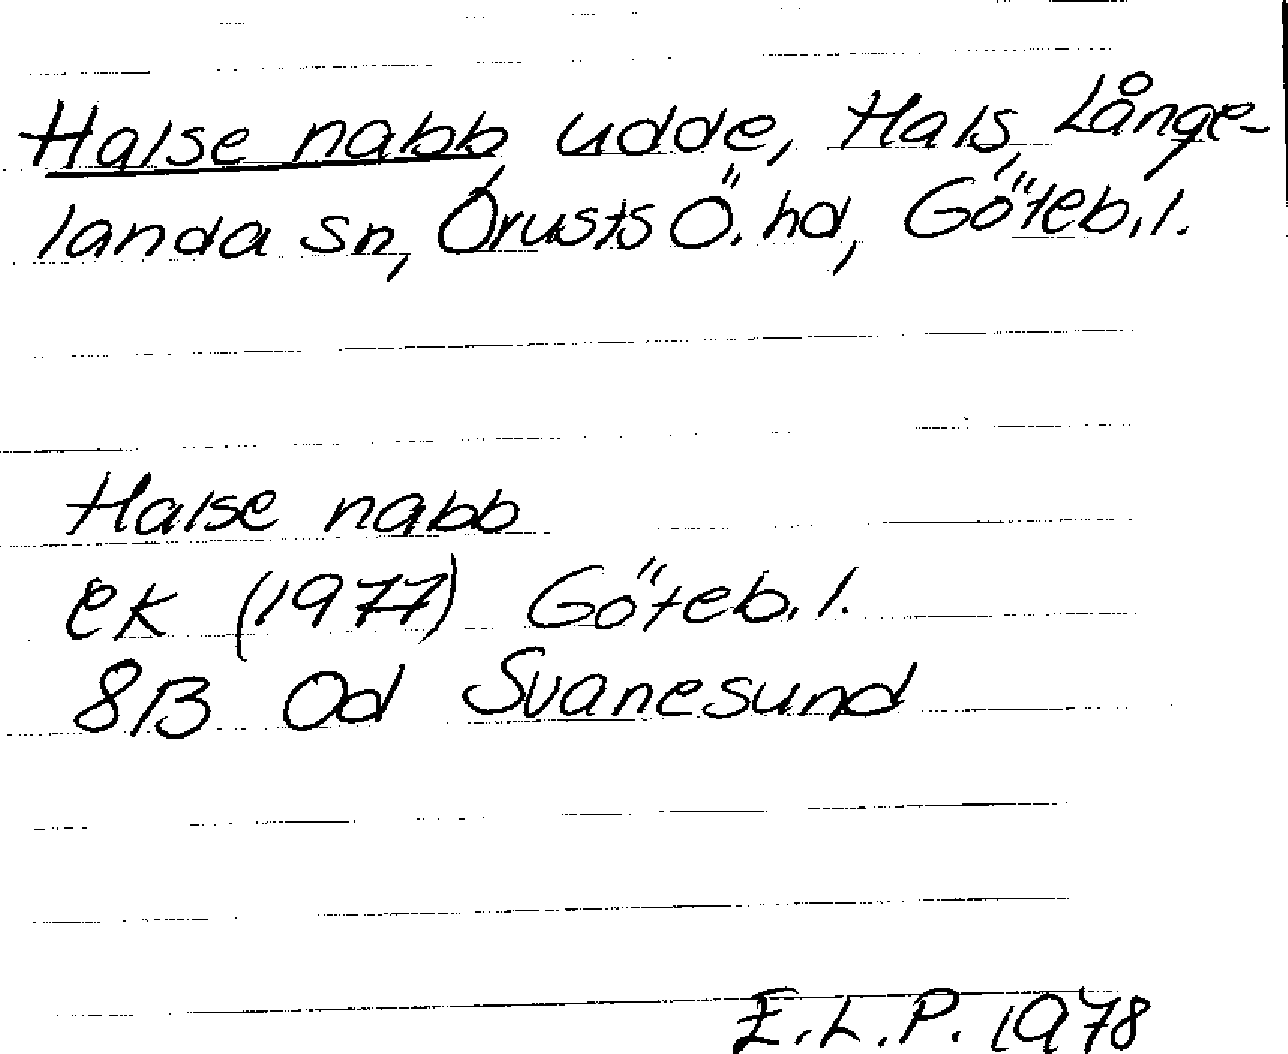 Halse nabb, udde, Hals, Långe-
landa sn, Orusts Ö. hd, Göteb. l.
Halse nabb
ek (1977) Göteb. l.
8B Od Svanesund
E.L.P. 1978